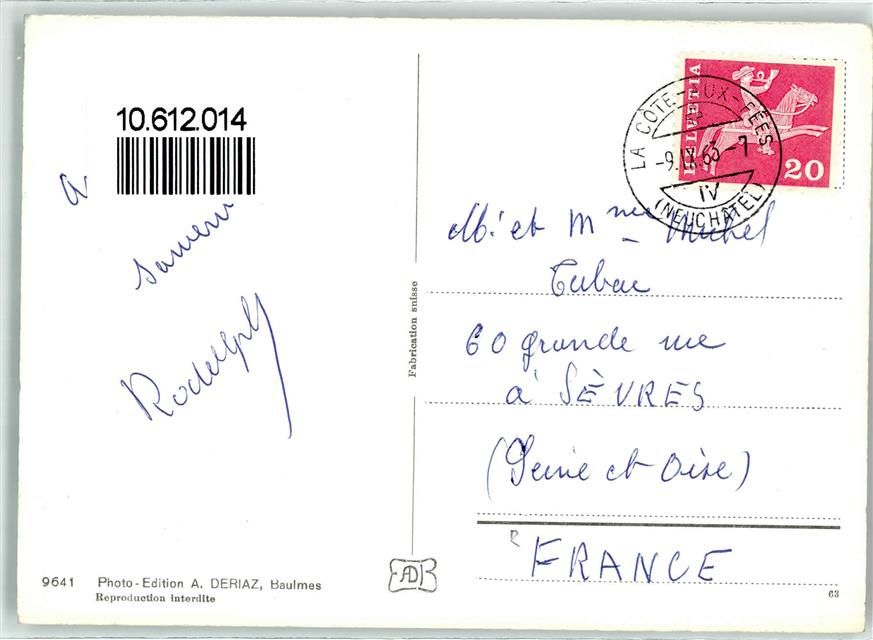 10.612.014
souvenir
Rodolph
9641 Photo-Edition A. DERIAZ, Baulmes
Reproduction interdite
Fabrication suisse
HELVETIA
20
LA CÔTE-AUX-FÉES
-9.IX.63-7
IV
(NEUCHÂTEL)
M. et Mme Michel
Tubac
60 grande rue
à SÈVRES
(Seine et Oise)
FRANCE
63